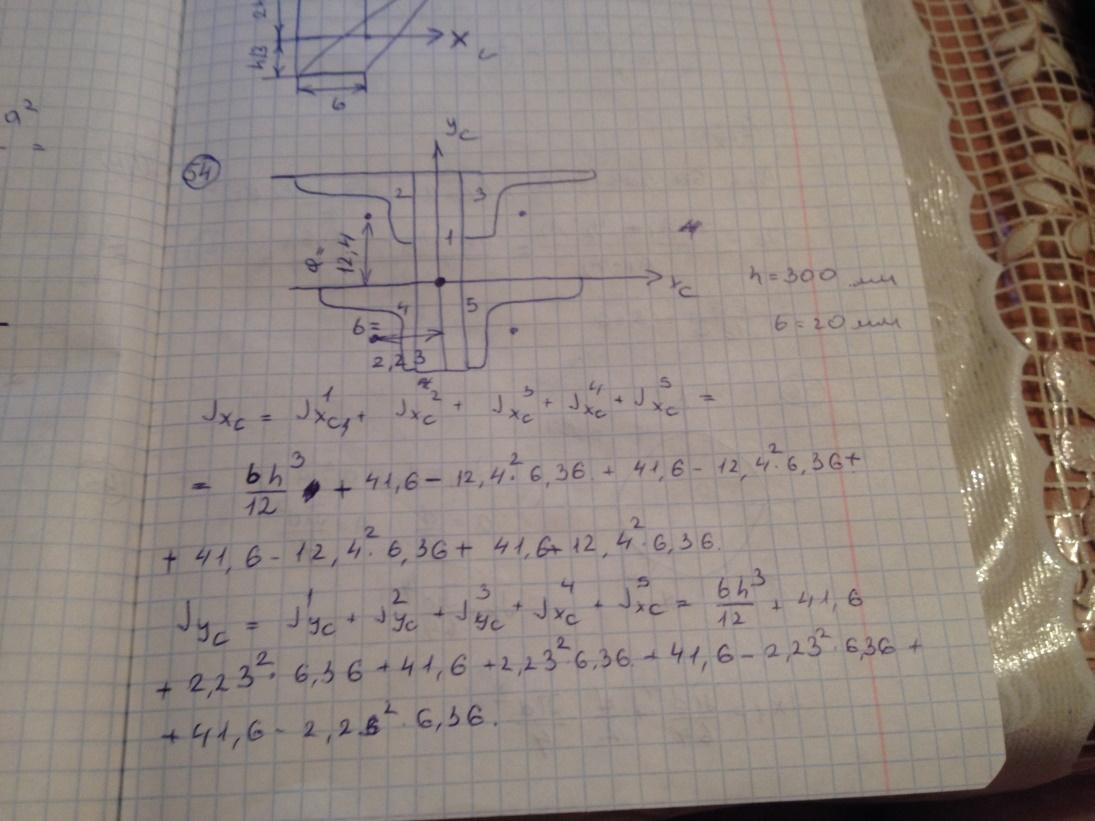 a²
2
h/3
x c
б
54
y c
2 3
1
a =
12,4
x c
h = 300 мм
4 5
б = 20 мм
б =
2,23
J x c = J¹ x c₁ + J² x c + J³ x c + J⁴ x c + J⁵ x c =
= bh³/12 + 41,6 - 12,4² · 6,36 + 41,6 - 12,4² · 6,36 +
+ 41,6 - 12,4² · 6,36 + 41,6 + 12,4² · 6,36.
J y c = J¹ y c + J² y c + J³ y c + J⁴ x c + J⁵ x c = bh³/12 + 41,6
+ 2,23² · 6,36 + 41,6 + 2,23² · 6,36 + 41,6 - 2,23² · 6,36 +
+ 41,6 - 2,23² · 6,36.